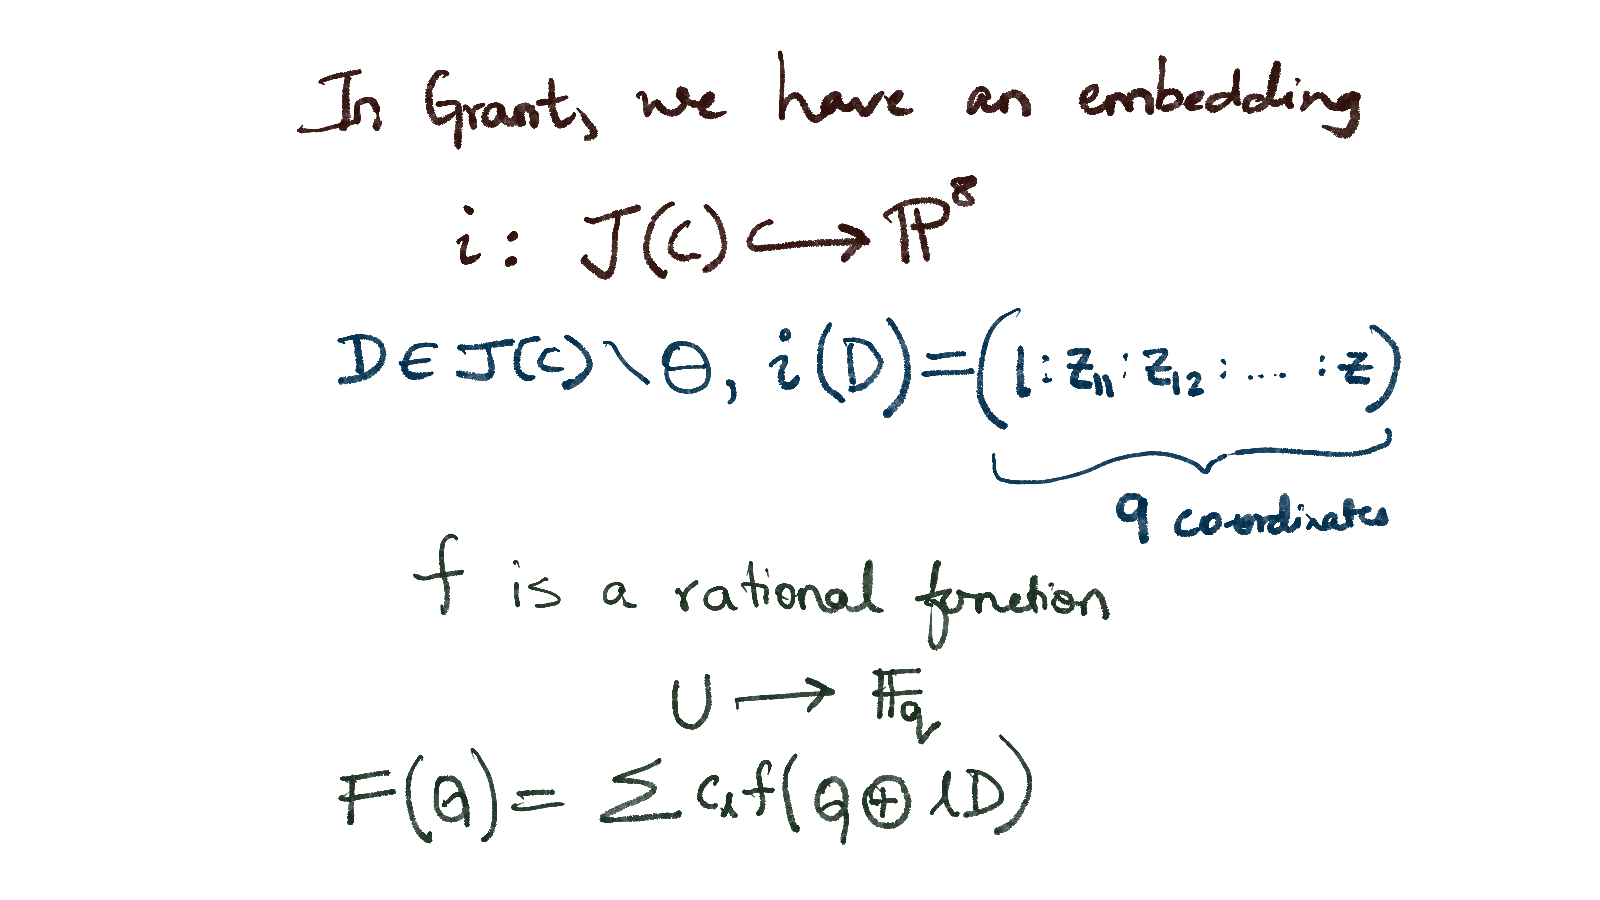 In Grant, we have an embedding
i: J(C) ↪ ℙ⁸
D ∈ J(C) \ Θ, i(D) = (1 : z₁₁ : z₁₂ : .... : z)
9 coordinates
f is a rational function
U → 𝔽_q
F(Q) = Σ c_l f(Q ⊕ lD)